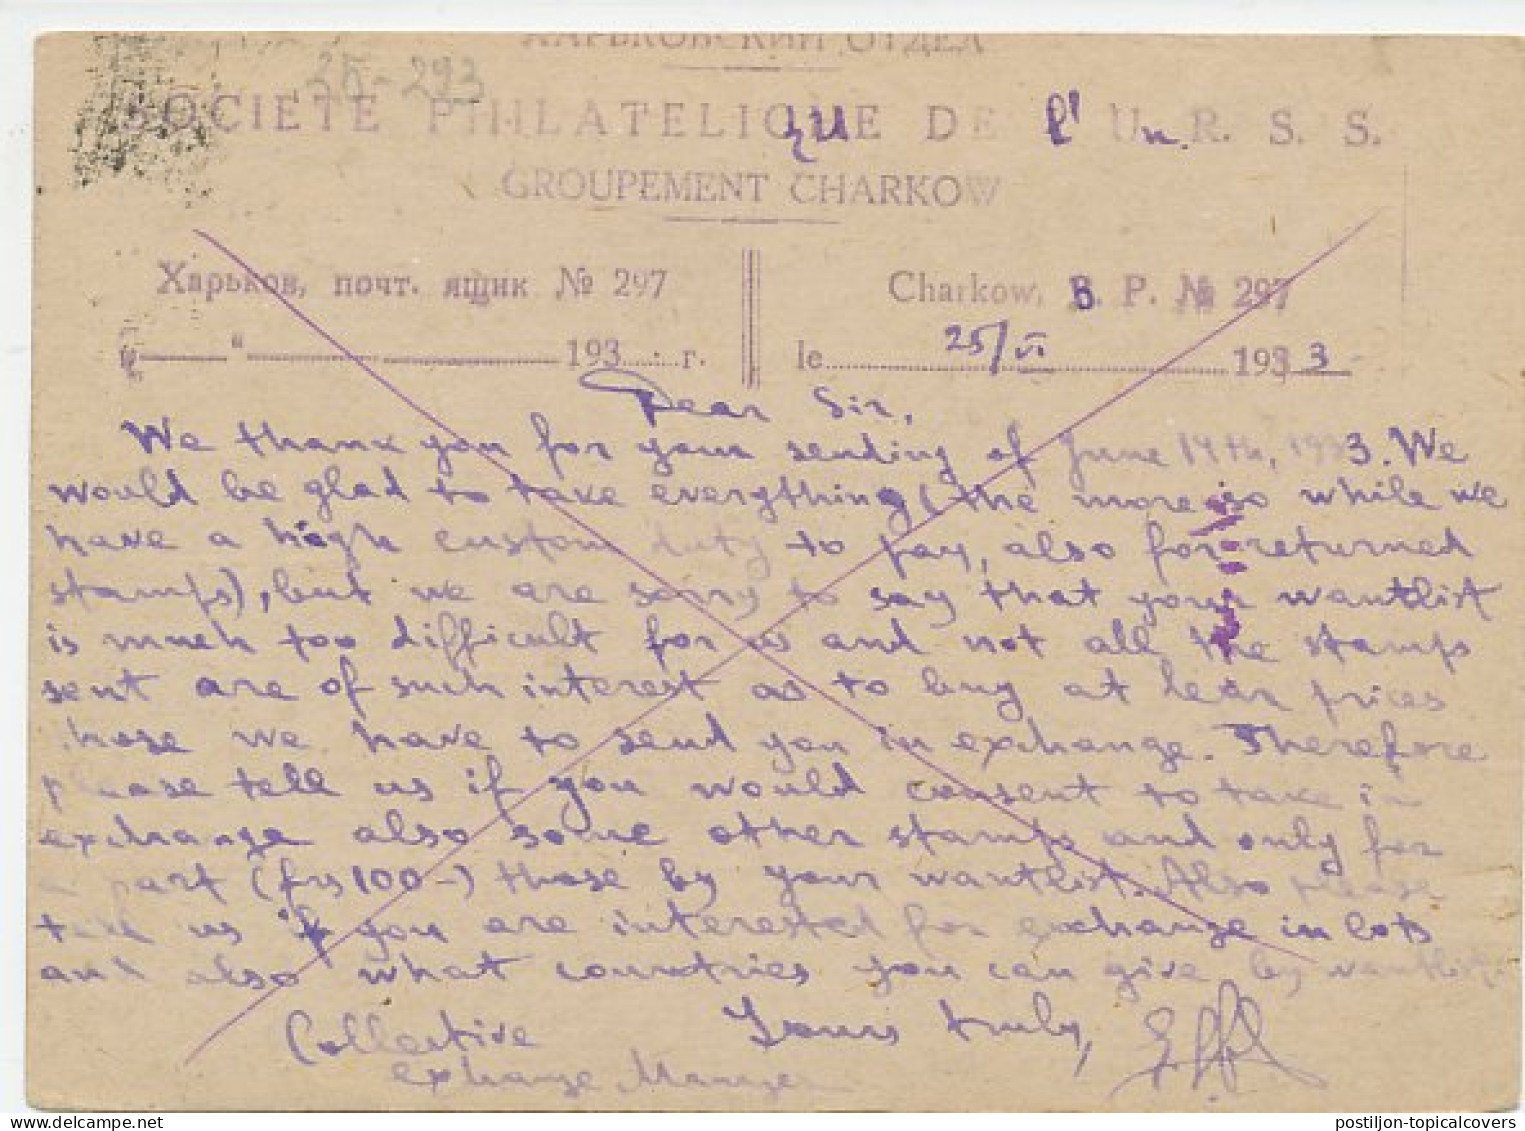 ХАРЬКОВСКИЙ ОТДЕЛ
25-293
SOCIETE PHILATELIQUE DE l' Un. R. S. S.
GROUPEMENT CHARKOW
Харьков, почт. ящик № 297
" 193 г.
Charkow, B. P. № 297
le 25/VI 1933
Dear Sir,
We thank you for your sending of June 14th, 1933. We
would be glad to take everything (the more so while we
have a high custom duty to pay, also for returned
stamps), but we are sorry to say that your wantlist
is much too difficult for us and not all the stamps
sent are of such interest as to buy at dear prices
those we have to send you in exchange. Therefore
please tell us if you would consent to take in
exchange also some other stamps and only for
a part (frs 100-) those by your wantlist. Also please
us if you are interested for exchange in lots
and also what countries you can give by wantlist.
Yours truly,
Collective
exchange Manager
postiljon-topicalcovers